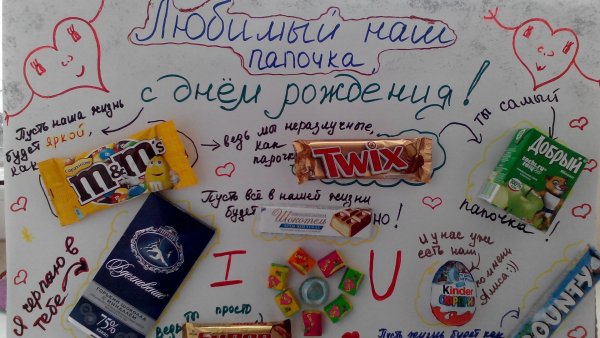 Любимый наш
папочка,
с днём рождения!
Пусть наша жизнь
будет яркой,
как
m&m's
ведь мы неразлучные,
как
парочка
TWIX
ты самый
Добрый
папочка!
Пусть всё в нашей жизни
будет
Шокотел
но!
Я черпаю в
тебе
Вдохновение
75%
I
U
и у нас уже
есть наш
Kinder
СЮРПРИЗ
Алиса:))
BOUNTY
ты просто
ведь
Пусть жизнь будет как